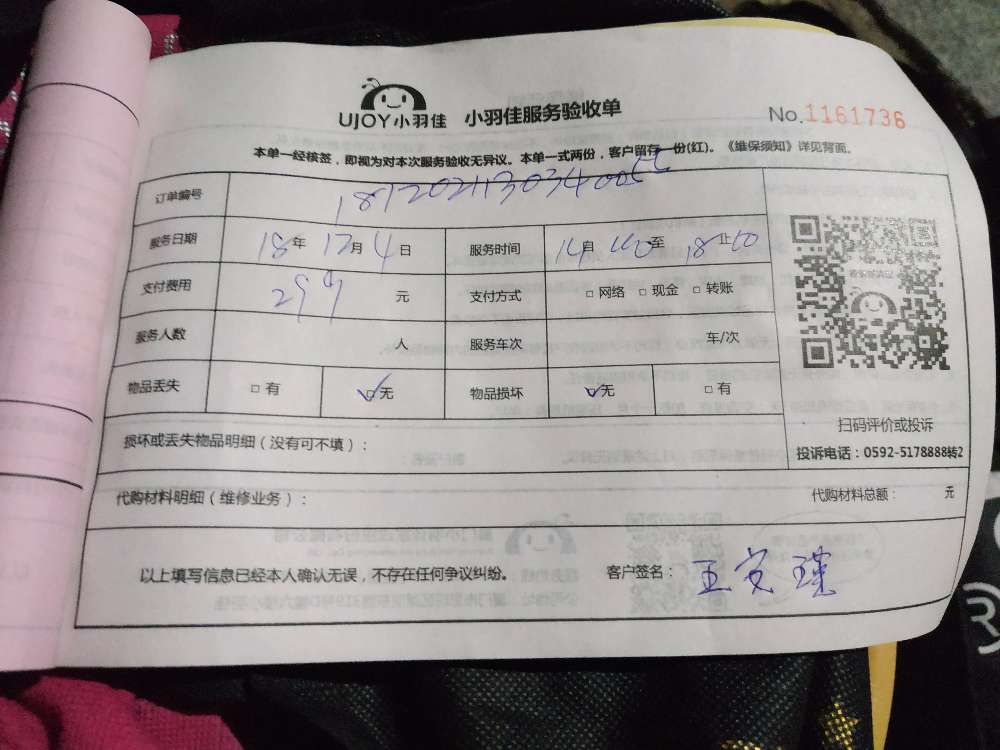 UJOY小羽佳 小羽佳服务验收单 No.1161736
本单一经核签，即视为对本次服务验收无异议。本单一式两份，客户留存一份(红)。《维保须知》详见背面。
订单编号
服务日期 18年 12月 4日 服务时间 14自 00至 18止00
支付费用 299 元 支付方式 □网络 □现金 □转账
服务人数 人 服务车次 车/次
物品丢失 □有 ☑无 物品损坏 ☑无 □有
扫码评价或投诉
损坏或丢失物品明细（没有可不填）：
投诉电话：0592-5178888转2
代购材料明细（维修业务）： 代购材料总额： 元
以上填写信息已经本人确认无误，不存在任何争议纠纷。 客户签名：